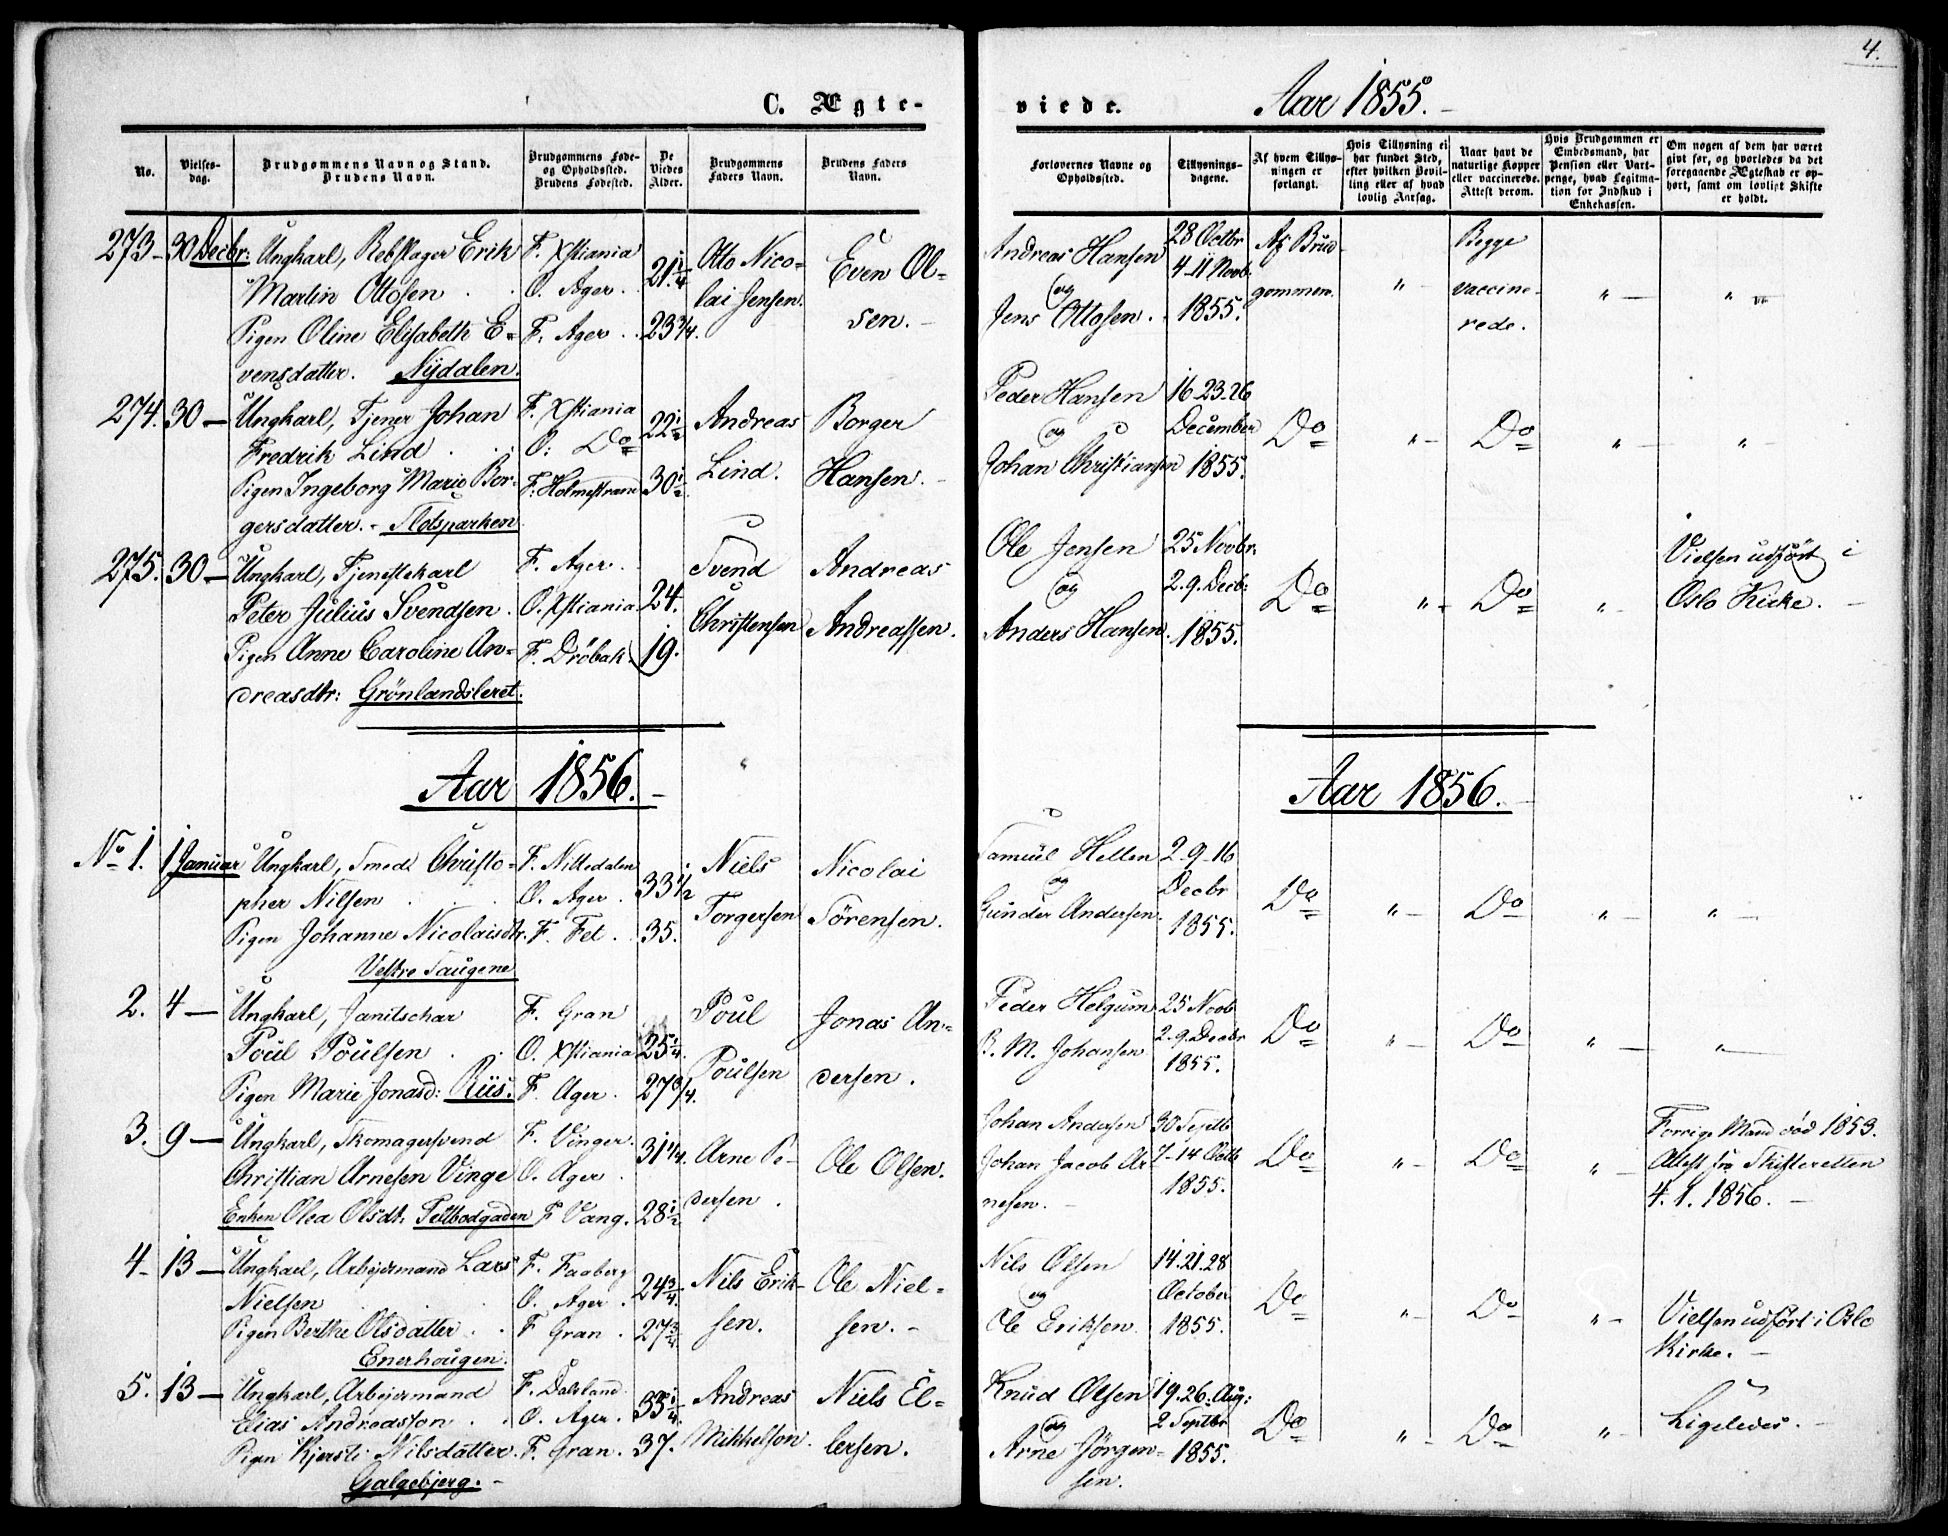 4.
C. Ægte-
viede.
Aar 1855.
No.
Vielses-
dag.
Brudgommens Navn og Stand.
Brudens Navn.
Brudgommens Føde-
og Opholdssted.
Brudens Fødested.
De
Viedes
Alder.
Brudgommens
Faders Navn.
Brudens Faders
Navn.
Forlovernes Navne og
Opholdssted.
Tillysnings-
dagene.
Af hvem Tillys-
ningen er
forlangt.
Hvis Tillysning ei
har fundet Sted,
efter hvilken Bevil-
ling eller af hvad
lovlig Aarsag.
Naar havt de
naturlige Kopper
eller vaccinerede.
Attest derom.
Hvis Brudgommen er
Embedsmand, har
Pension eller Vart-
penge, hvad Legitima-
tion for Indskud i
Enkekassen.
Om nogen af dem har været
gift før, og hvorledes da det
foregaaende Ægteskab er op-
hørt, samt om lovligt Skifte
er holdt.
273 - 30 Decbr:
Ungkarl, Rebslager Erik
Martin Ottosen
Pigen Oline Elisabeth E-
vensdatter. Nÿdalen.
F. Xstiania
O. Ager.
F. Ager.
21 1/4
23 3/4.
Otto Nico-
lai Jensen.
Even Ol-
sen.
Andreas Hansen
og
Jens Ottosen.
28 Octbr
4-11 Novb.
1855.
Af Brud-
gommen.
" -
Begge
vaccine-
rede.
" -
" -
274. 30 -
Ungkarl, Tjener Johan
Fredrik Lind
Pigen Ingeborg Marie Bor-
gersdatter. - Slotsparken
F. Xstiania
O: Do
F. Holmestrand
22 1/2
30 1/2
Andreas
Lind.
Borger
Hansen.
Peder Hansen
og
Johan Christiansen
16-23-26
December
1855.
Do
" -
Do
" -
" -
275. 30 -
Ungkarl, Tjenestekarl
Peter Julius Svendsen.
Pigen Anne Caroline An-
dreasdtr: Grönlandsleret.
F. Ager.
O. Xstiania
F. Dröbak.
24.
19.
Svend
Christensen
Andreas
Andreassen.
Ole Jensen
og
Anders Hansen.
25 Novbr.
2. 9. Decb:
1855.
Do
" -
Do
" -
Vielsen udfört i
Oslo Kirke. -
Aar 1856.
Aar 1856.
No 1. 1 Januar
Ungkarl, Smed Christo-
pher Nilsen
Pigen Johanne Nicolaisdtr.
Vestre Saugene
F. Nittedalen
O. Ager.
F. Fet.
33 1/2
35.
Niels
Torgersen
Nicolai
Sörensen.
Samuel Hellen
og
Gunder Andersen.
2-9-16
Decbr
1855.
Do
" -
Do
" -
" -
2. 4 -
Ungkarl, Janitschar
Poul Poulsen
Pigen Marie Jonasd: Riis.
F. Gran
O. Xstiania
F. Ager.
25 1/4.
27 3/4.
Poul
Poulsen
Jonas An-
dersen.
Peder Helgum
B. M. Johansen
25 Novb
2. 9. Decbr
1855.
Do
" -
Do
" -
" -
3. 9 -
Ungkarl, Skomagersvend
Christian Arnesen Vinge
Enken Olea Olsdt. Feltbodgaden
F. Vinger.
O. Ager.
F. Vang.
31 1/4.
28 1/2
Arne Pe-
dersen.
Ole Olsen.
Johan Andersen
Johan Jacob Ar-
nesen. -
30 Septb
7-14 Octb
1855.
Do
" -
Do
" -
Forrige Mand död 1853.
Attest fra Skifteretten
4. 1. 1856. -
4 - 13 -
Ungkarl, Arbejdermand Lars
Nielsen
Pigen Berthe Olsdatter.
Enerhougen.
F. Faaberg
O. Ager.
F. Gran.
24 3/4.
27 3/4
Nils Erik-
sen.
Ole Niel-
sen. -
Nils Olsen
og
Ole Eriksen.
14. 21. 28
October
1855.
Do
" -
Do
" -
Vielsen udfört i Oslo
Kirke. -
5. 13 -
Ungkarl, Arbejdermand
Elias Andreasson.
Pigen Kjersti Nilsdatter.
Galgebjerg. -
F. Dalsland.
O. Ager.
F. Gran.
35 1/4.
37.
Andreas
Mikkelson.
Niels El-
lersen.
Knud Olsen
og
Arne Jörgen-
sen.
19. 26. Aug:
2 Septbr
1855.
Do
" -
Do
" -
Ligeledes. -